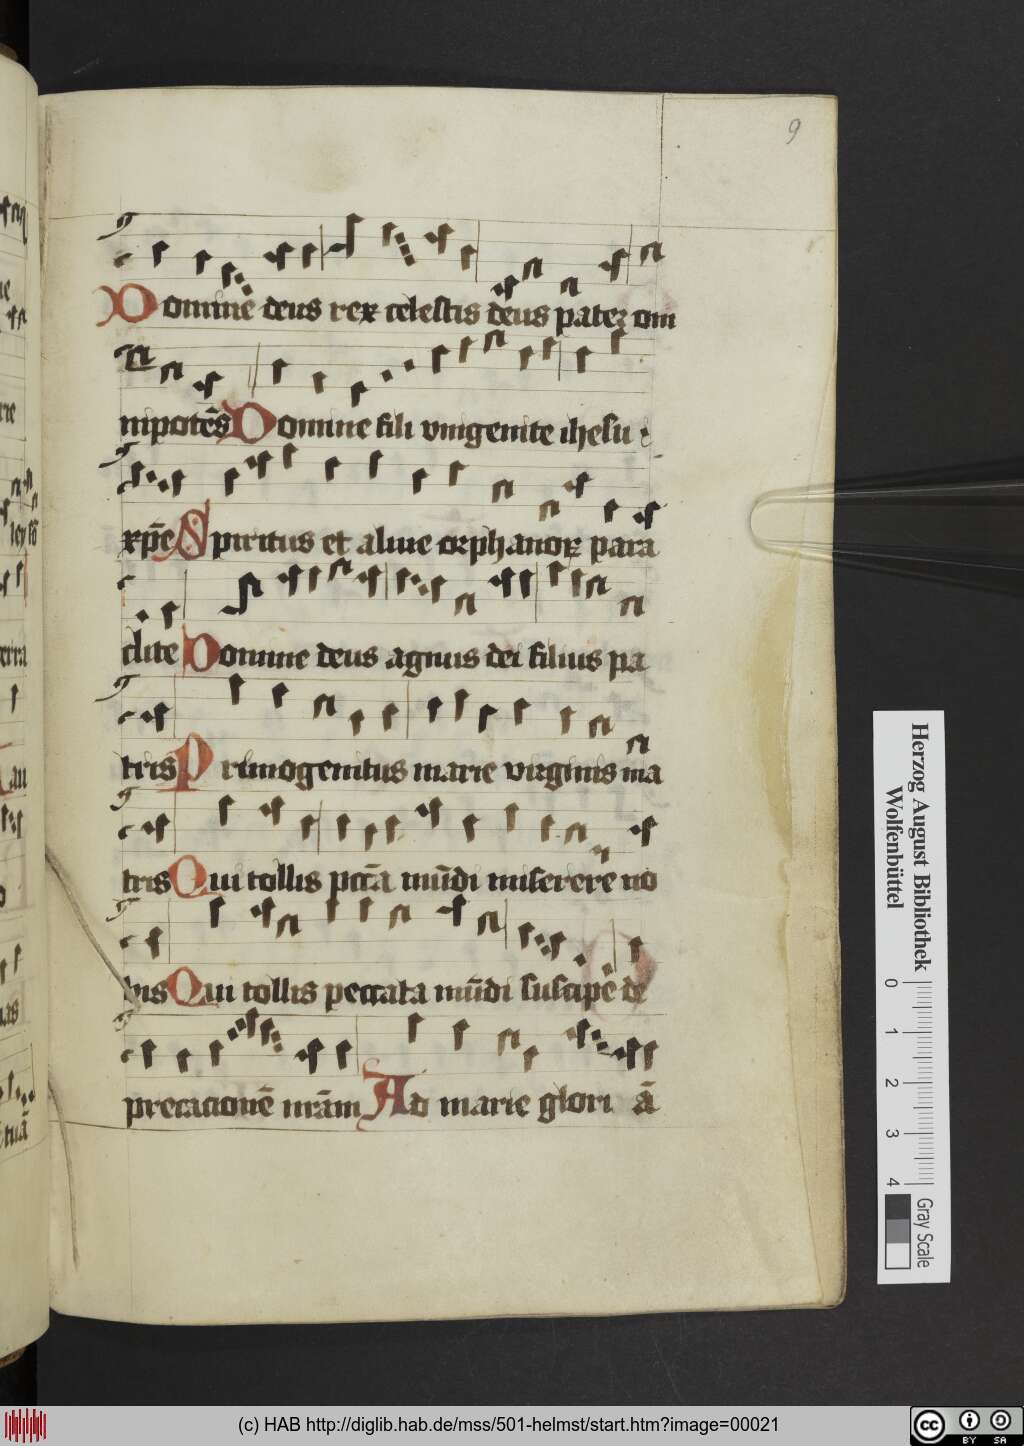 9
Domine deus rex celestis deus pater om
nipotēs Domine fili vnigenite ihesu
xp̄e Spiritus et alme orphanoꝝ para
clite Domine deus agnus dei filius pa
tris Primogenitus marie virginis ma
tris Qui tollis pctā mūdi miserere no
bis Qui tollis peccata mūdi suscipe de
precationē nr̄am Ad marie glori ā
Herzog August Bibliothek
Wolfenbüttel
0 1 2 3 4
Gray Scale
(c) HAB http://diglib.hab.de/mss/501-helmst/start.htm?image=00021
cc BY SA